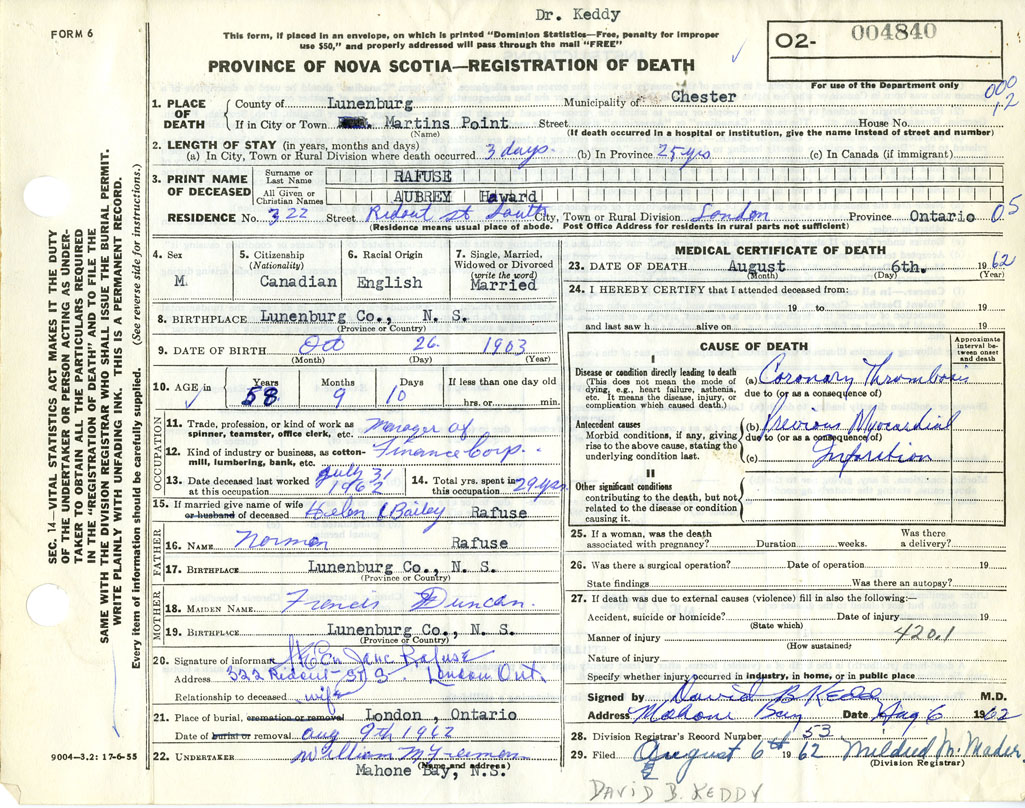 Dr. Keddy
FORM 6
This form, if placed in an envelope, on which is printed "Dominion Statistics—Free, penalty for improper
use $50," and properly addressed will pass through the mail "FREE"
O2- 004840
For use of the Department only
PROVINCE OF NOVA SCOTIA—REGISTRATION OF DEATH
000
12
1. PLACE OF DEATH { County of Lunenburg Municipality of Chester
If in City or Town Martins Point Street House No.
(Name) (If death occurred in a hospital or institution, give the name instead of street and number)
2. LENGTH OF STAY (in years, months and days)
(a) In City, Town or Rural Division where death occurred 3 days. (b) In Province 25 yrs (c) In Canada (if immigrant)
3. PRINT NAME OF DECEASED { Surname or Last Name RAFUSE
All Given or Christian Names AUBREY Haward
RESIDENCE No. 322 Street Ridout St South City, Town or Rural Division London Province Ontario 05
(Residence means usual place of abode. Post Office Address for residents in rural parts not sufficient)
4. Sex M.
5. Citizenship (Nationality) Canadian
6. Racial Origin English
7. Single, Married, Widowed or Divorced (write the word) Married
8. BIRTHPLACE Lunenburg Co., N. S.
(Province or Country)
9. DATE OF BIRTH Oct 26 1903
(Month) (Day) (Year)
10. AGE in Years 58 Months 9 Days 10 If less than one day old
hrs. or min.
OCCUPATION
11. Trade, profession, or kind of work as spinner, teamster, office clerk, etc. Manager of
12. Kind of industry or business, as cotton-mill, lumbering, bank, etc. Finance Corp.
13. Date deceased last worked at this occupation July 31 1962
14. Total yrs. spent in this occupation 29 yrs
15. If married give name of wife or husband of deceased Helen J Bailey Rafuse
FATHER
16. NAME Norman Rafuse
17. BIRTHPLACE Lunenburg Co., N. S.
(Province or Country)
MOTHER
18. MAIDEN NAME Francis Duncan.
19. BIRTHPLACE Lunenburg Co., N. S.
(Province or Country)
20. Signature of informant Jane Rafuse
Address 322 Ridout St S. London Ont.
Relationship to deceased wife
21. Place of burial, cremation or removal London, Ontario
Date of burial or removal Aug 9th 1962
22. UNDERTAKER William M
(Name and address)
Mahone Bay, N.S.
MEDICAL CERTIFICATE OF DEATH
23. DATE OF DEATH August 6th. 1962
(Month) (Day) (Year)
24. I HEREBY CERTIFY that I attended deceased from:
19 to 19
and last saw h alive on 19
CAUSE OF DEATH
Approximate interval between onset and death
I
Disease or condition directly leading to death
(This does not mean the mode of dying, e.g., heart failure, asthenia, etc. It means the disease, injury, or complication which caused death.)
(a) Coronary Thrombosis
due to (or as a consequence of)
Antecedent causes
Morbid conditions, if any, giving rise to the above cause, stating the underlying condition last.
(b) Previous Myocardial
due to (or as a consequence of)
(c) Infarction
II
Other significant conditions
contributing to the death, but not related to the disease or condition causing it.
25. If a woman, was the death associated with pregnancy? Duration weeks. Was there a delivery?
26. Was there a surgical operation? Date of operation 19
State findings Was there an autopsy?
27. If death was due to external causes (violence) fill in also the following:—
Accident, suicide or homicide? Date of injury 19
(State which)
Manner of injury 420.1
(How sustained)
Nature of injury
Specify whether injury occurred in industry, in home, or in public place
Signed by David B Keddy M.D.
Address Mahone Bay Date Aug 6 1962
28. Division Registrar's Record Number 53
29. Filed August 6th 1962 Mildred M. Mader
(Division Registrar)
DAVID B. KEDDY
SEC. 14—VITAL STATISTICS ACT MAKES IT THE DUTY
OF THE UNDERTAKER OR PERSON ACTING AS UNDER-
TAKER TO OBTAIN ALL THE PARTICULARS REQUIRED
IN THE "REGISTRATION OF DEATH" AND TO FILE THE
SAME WITH THE DIVISION REGISTRAR WHO SHALL ISSUE THE BURIAL PERMIT.
WRITE PLAINLY WITH UNFADING INK. THIS IS A PERMANENT RECORD.
Every item of information should be carefully supplied. (See reverse side for instructions.)
9004—3,2: 17-6-55